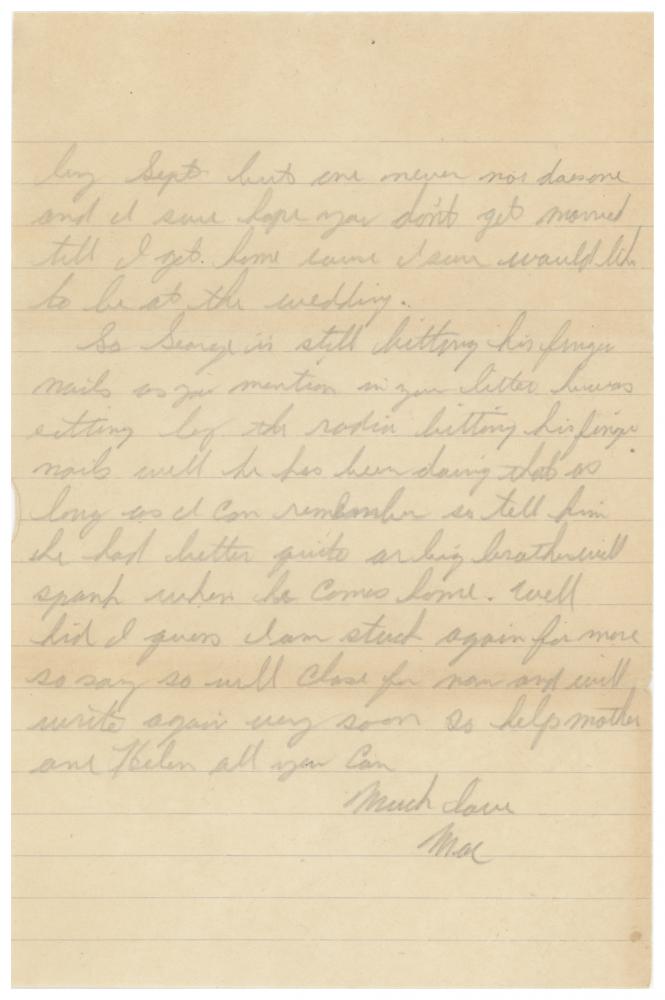 by Sept but one never nos daesone
and I sure hope you don't get married
till I get home cause I sure would like
to be at the wedding.
So George is still bitting his finger
nails as you mention in your letter he was
sitting by the radio bitting his finger
nails well he has been doing that as
long as I can remember so tell him
he had better quite or big brother will
spank when he comes home. Well
kid I guess I am stuck again for more
so say so will close for now and will
write again very soon so help mother
and Helen all you can
Much Love
Mac